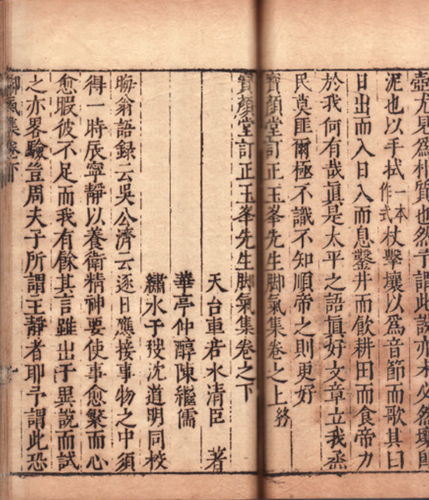 壺尤見為樸質也然予謂說亦未必然壤即
泥也以手拭一本作式杖擊壤以為音節而歌其曰
日出而入日入而息鑿井而飲耕田而食帝力
於我何有哉眞是太平之語眞好文章立我烝
民莫匪爾極不識不知順帝之則更好
寶顏堂訂正玉峯先生脚氣集卷之上終
寶顏堂訂正玉峯先生脚氣集卷之下
天台車若水清臣 著
華亭仲醇陳繼儒
繡水于𠭇沈道明同校
晦翁語録云吳公濟云逐日應接事物之中須
得一時辰寧靜以養衛精神要使事愈繁而心
愈暇彼不足而我有餘其言雖出于異說而試
之亦畧驗豈周夫子所謂主靜者耶予謂此恐
脚氣集卷下